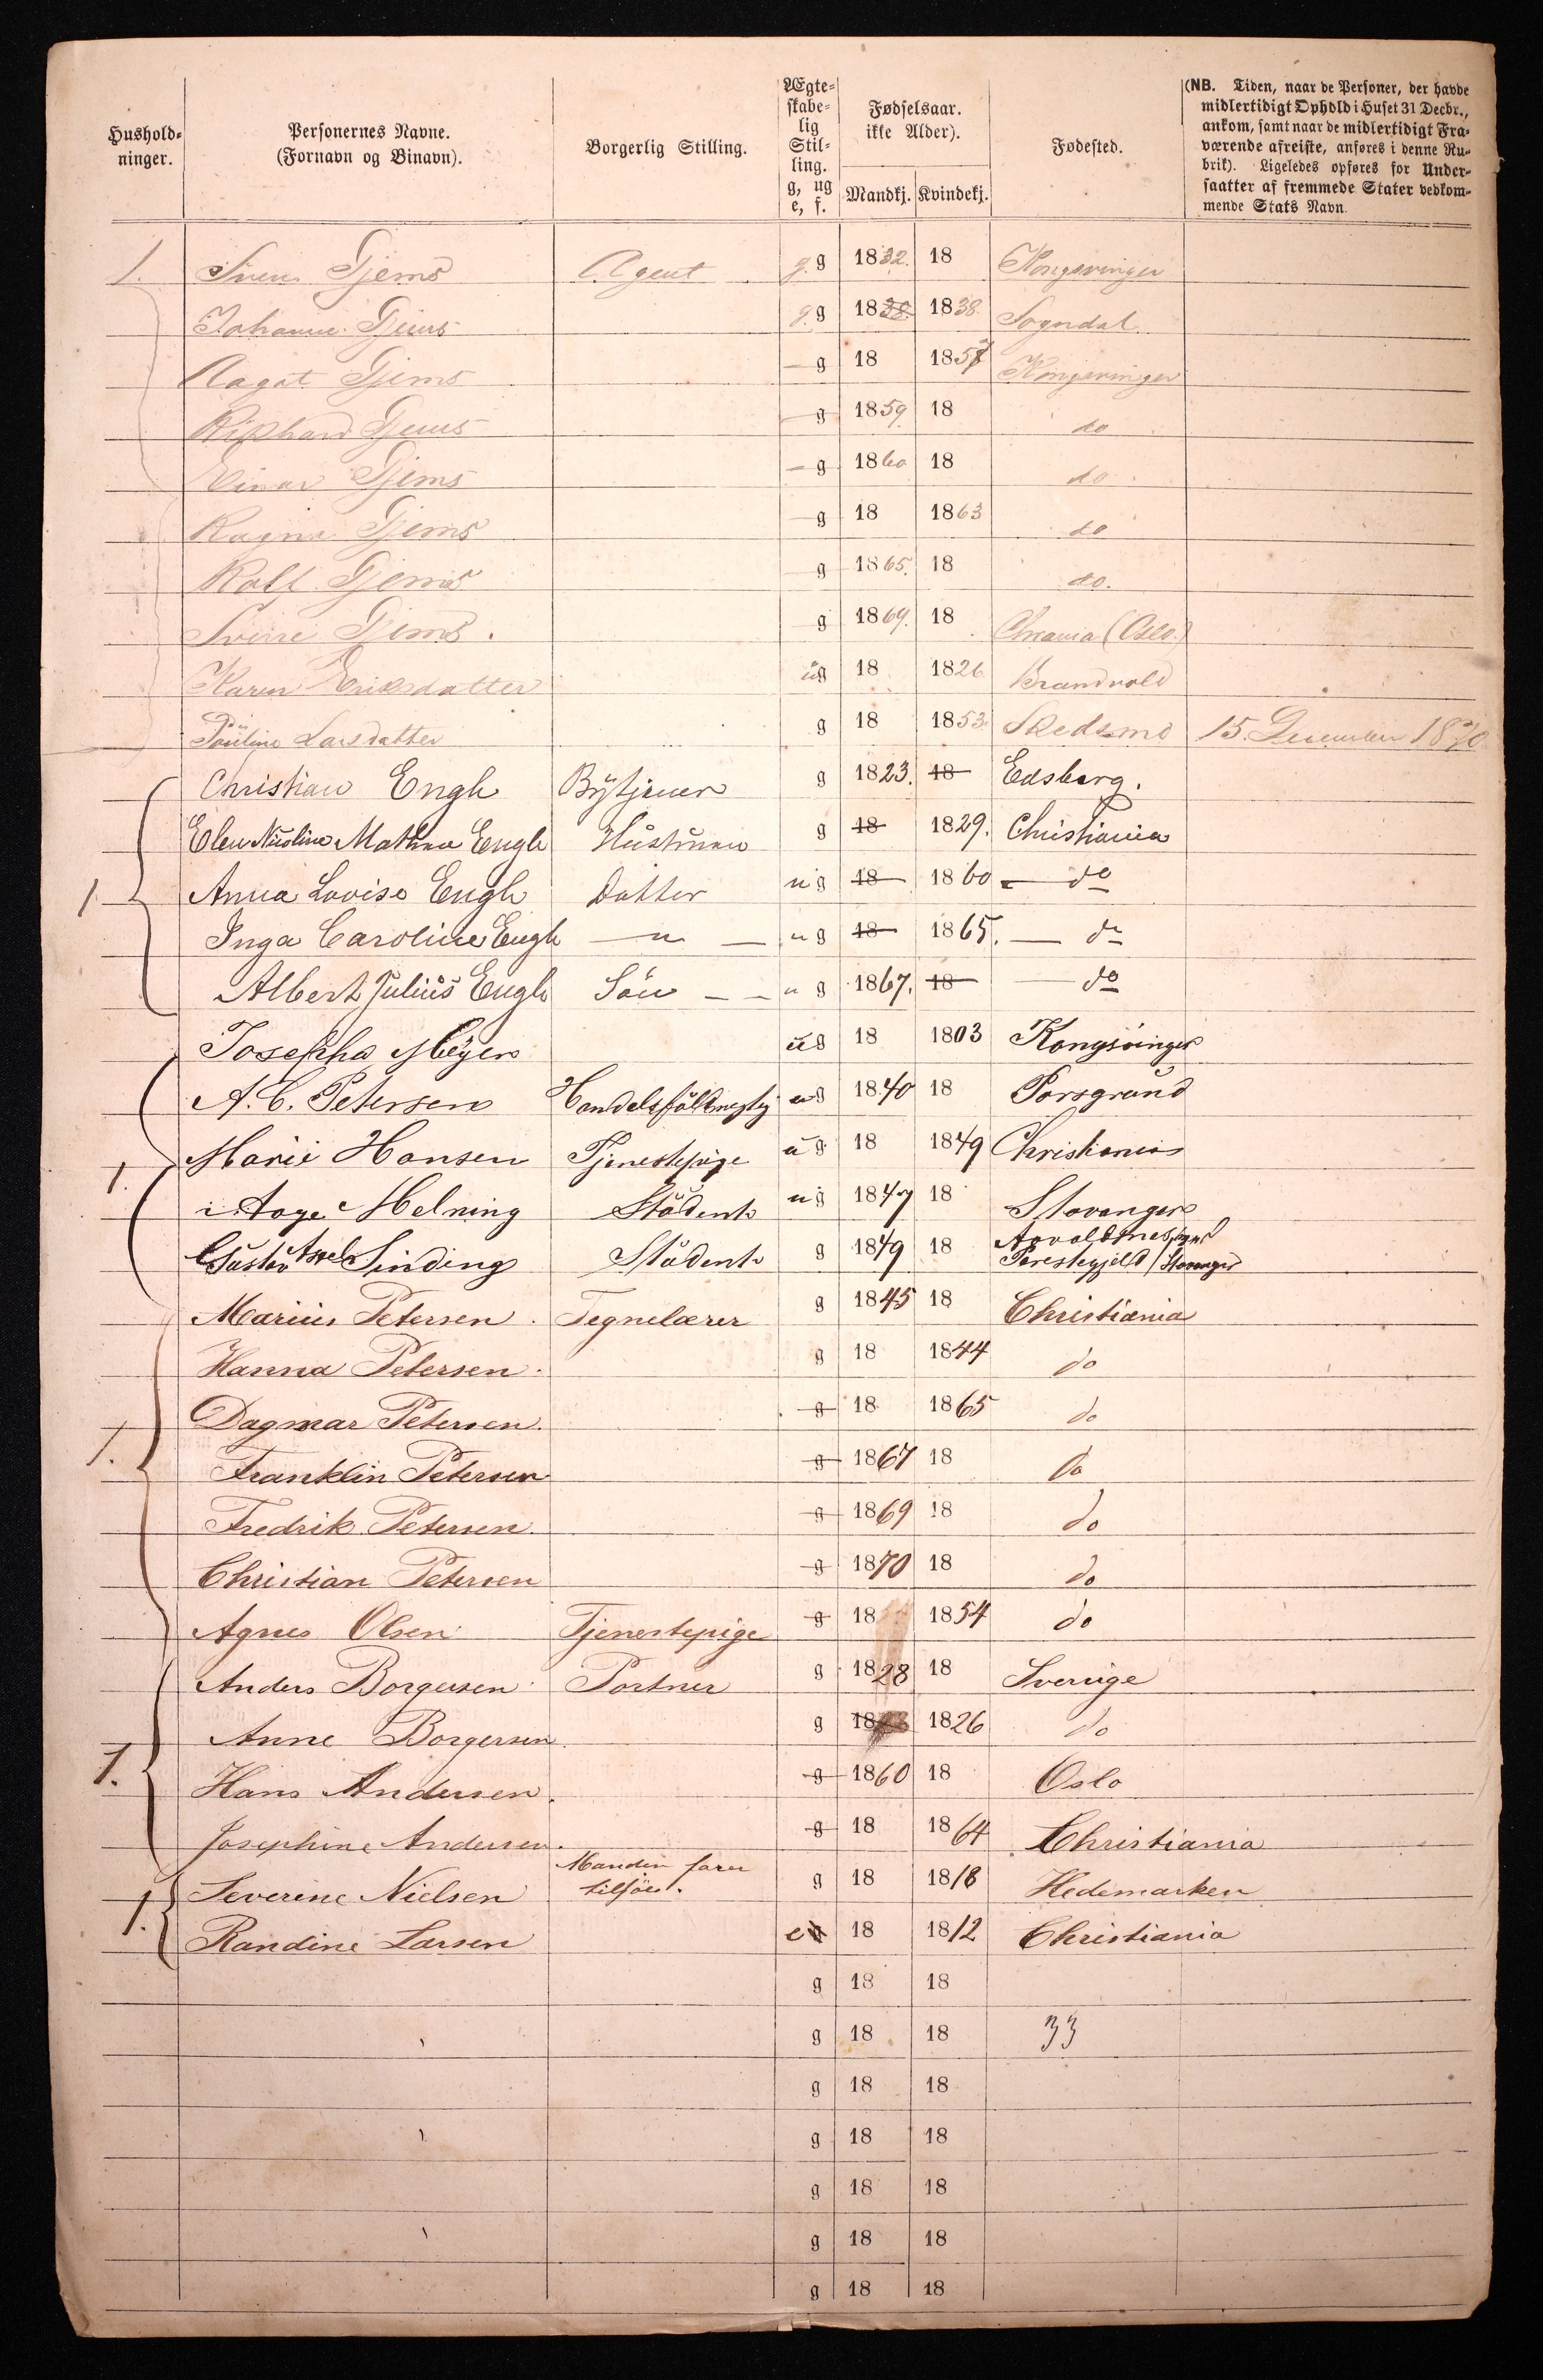 Hushold-
ninger.
Personernes Navne.
(Fornavn og Binavn).
Borgerlig Stilling.
Ægte-
skabe-
lig
Stil-
ling.
g, ug
e, f.
Fødselsaar.
ikke Alder).
Mandkj. Kvindekj.
Fødested.
(NB. Tiden, naar de Personer, der havde
midlertidigt Ophold i Huset 31 Decbr.,
ankom, samt naar de midlertidigt Fra-
værende afreiste, anføres i denne Ru-
brik). Ligeledes opføres for Under-
saatter af fremmede Stater vedkom-
mende Stats Navn.
1. Sven Gjems Agent g. g 1832. 18 Kongsvinger
Johanne Gjems g. g 18 1838 Sogndal.
Aagot Gjems g 18 1857 Kongsvinger
Richard Gjems g 1859. 18 do
Einar Gjems g 1860 18 do
Ragna Gjems g 18 1863 do
Rolf Gjems g 1865. 18 do.
Sverre Gjems. g 1869. 18 Chrania (Oslo.)
Karen Eriksdatter ug 18 1826 Brandvold
Pauline Larsdatter g 18 1853 Skedsmo 15. December 1870
Christian Engh Bytjener g 1823. 18 Edsberg.
Elen Nicoline Mathea Engh Hustrue g 18 1829. Christiania
1 Anna Lovise Engh Datter ug 18 1860 — do
Inga Caroline Engh — " — ug 18 1865. — do
Albert Julius Engh Sön — — ug 1867. 18 — do
Josepha Meyer ug 18 1803 Kongsvinger
A. C. Petersen Handelsfuldmegtig ug 1840 18 Porsgrund
Marie Hansen Tjenestepige ug 18 1849 Christiania
1. Aage Melning Student ug 1847 18 Stavanger
Gustav Axel Sinding Student g 1849 18
Prestegjeld / Stavanger
Marius Petersen. Tegnelærer g 1845 18 Christiania
Hanna Petersen. g 18 1844 do
Dagmar Petersen. g 18 1865 do
1. Franklin Petersen g 1867 18 do
Fredrik Petersen. g 1869 18 do
Christian Petersen g 1870 18 do
Agnes Olsen Tjenestepige g 18 1854 do
Anders Borgersen Portner g 1828 18 Sverige
Anne Borgersen. g 18 1826 do
1. Hans Andersen. g 1860 18 Oslo
Josephine Andersen. g 18 1864 Christiania
Manden farer
Severine Nielsen tilsöes. g 18 1818 Hedemarken
1. Randine Larsen e 18 1812 Christiania
g 18 18
g 18 18 33
g 18 18
g 18 18
g 18 18
g 18 18
g 18 18